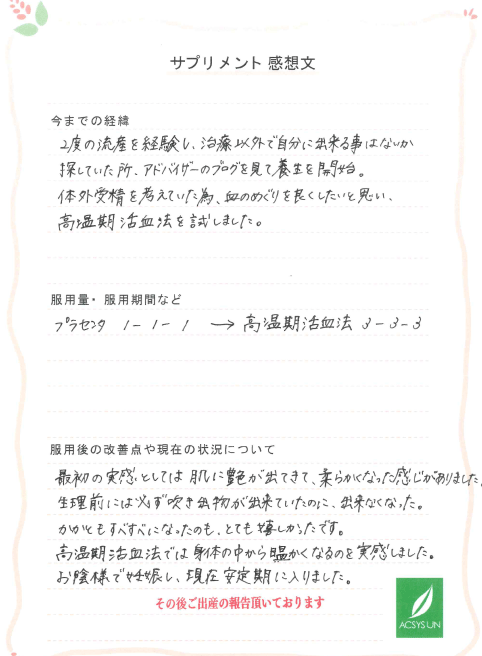 サプリメント 感想文
今までの経緯
2度の流産を経験し、治療以外で自分に出来る事はないか
探していた所、アドバイザーのブログを見て養生を開始。
体外受精を考えていた為、血のめぐりを良くしたいと思い、
高温期活血法を試しました。
服用量・服用期間など
プラセンタ 1-1-1 → 高温期活血法 3-3-3
服用後の改善点や現在の状況について
最初の実感としては肌に艶が出てきて、柔らかくなった感じがありました。
生理前には必ず吹き出物が出来ていたのに、出来なくなった。
かかともすべすべになったのも、とても嬉しかったです。
高温期活血法では身体の中から温かくなるのを実感しました。
お陰様で妊娠し、現在安定期に入りました。
その後ご出産の報告頂いております
ACSYSUN